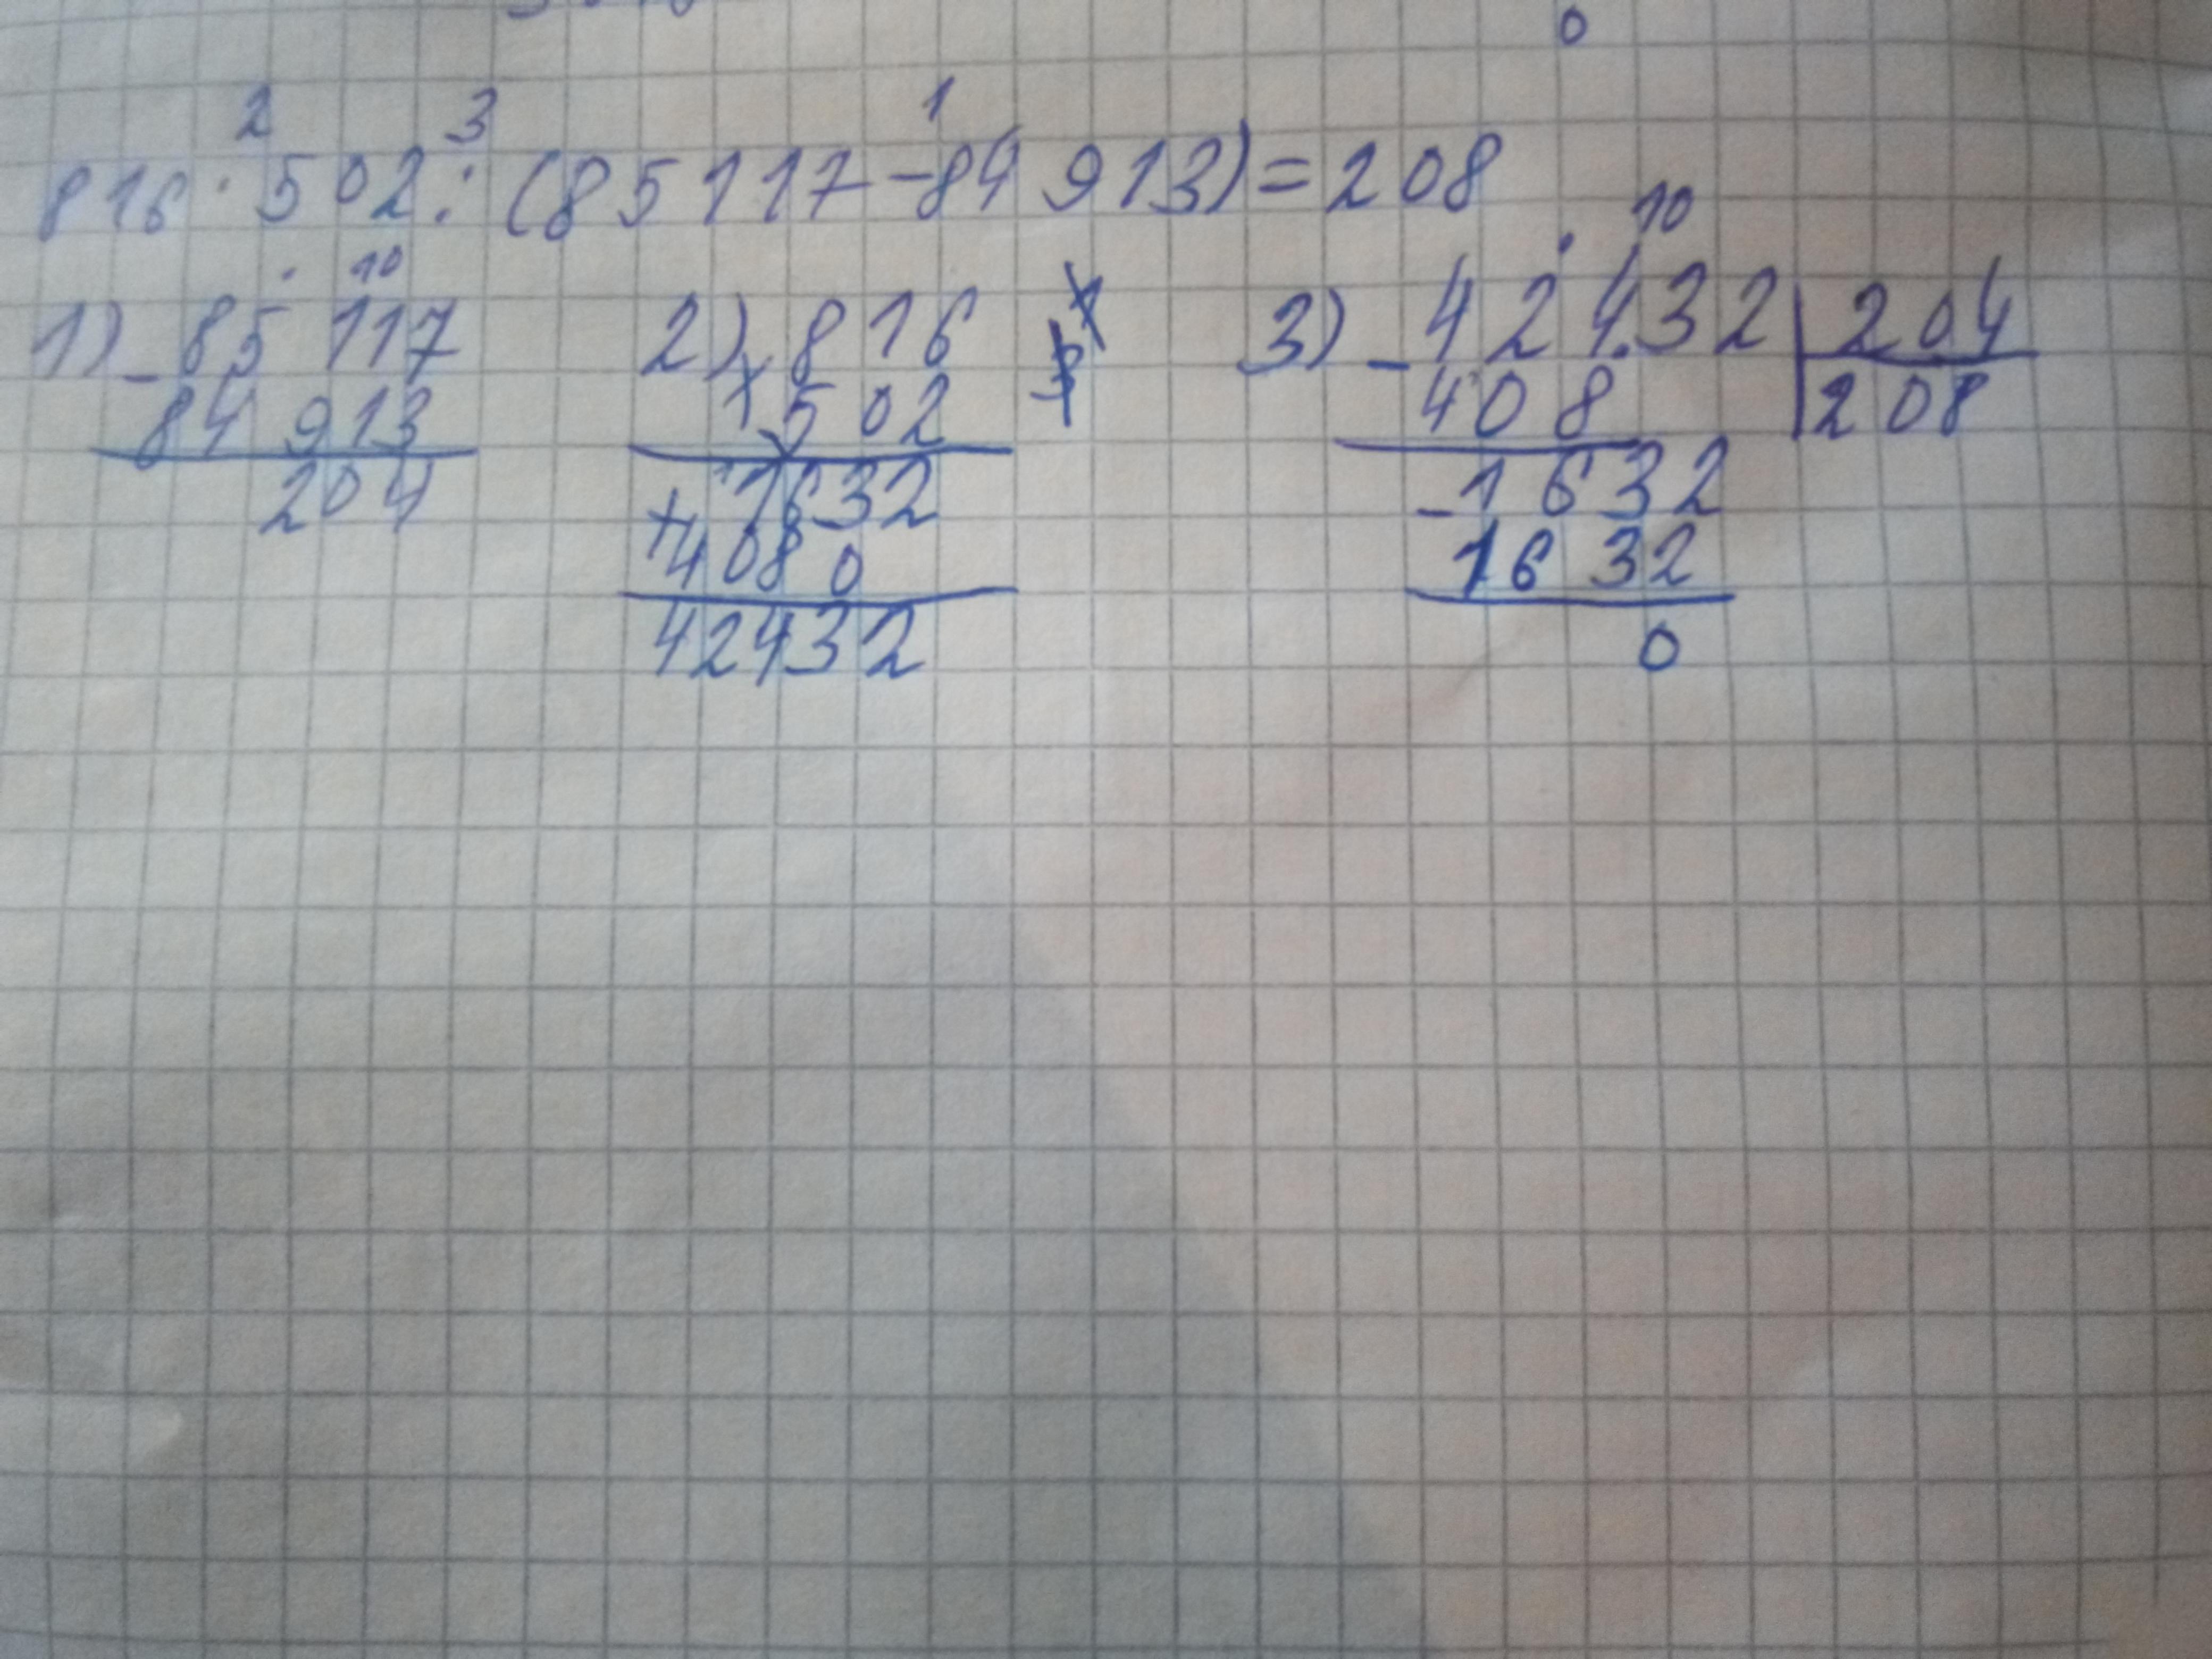 0
2 3 1
816 · 502 : (85 117 - 84 913) = 208
1) - 85 117
84 913
204
2) x 816
502
1632
+ 4080
42432
3) - 42432 | 204
408 | 208
- 1632
1632
0